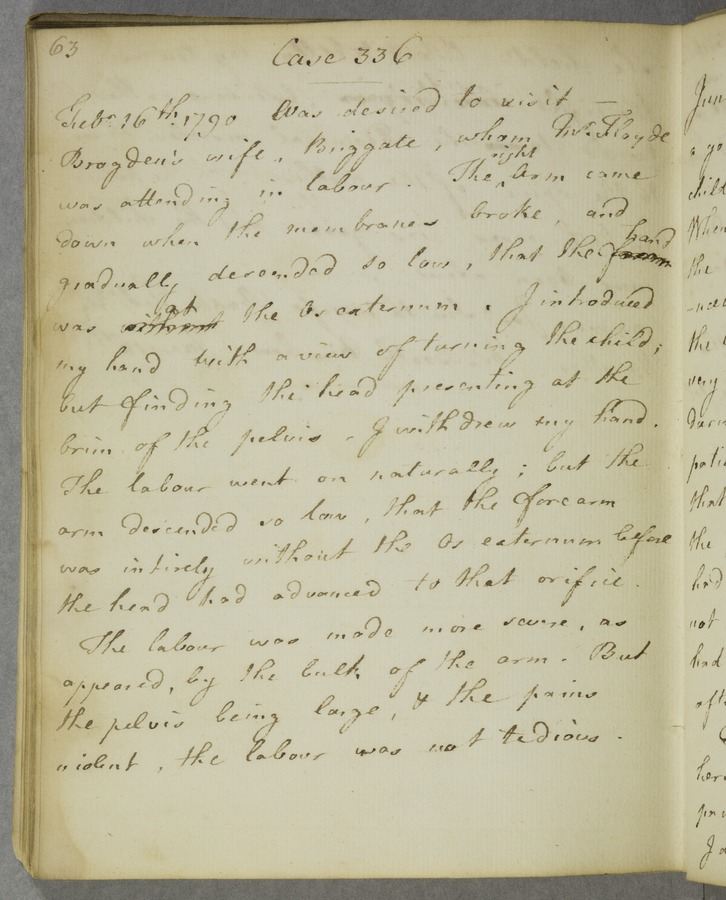 63
Case 336
Feb.ʸ 16th. 1790 Was desired to visit —
Brogden's wife, Briggate, whom Mr. Floyde
was attending in labour. The right Arm came
down when the membranes broke, and
gradually descended so low, that the hand
was at the Os externum. I introduced
my hand with a view of turning the child;
but finding the head presenting at the
brim of the pelvis, I withdrew my hand.
The labour went on naturally; but the
arm descended so low, that the forearm
was intirely without the Os externum before
the head had advanced to that orifice.
The labour was made more severe, as
appeared, by the bulk of the arm. But
the pelvis being large, & the pains
violent, the labour was not tedious.